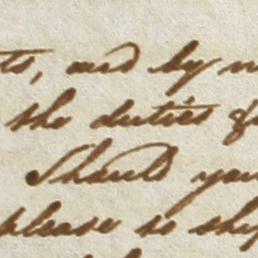 ts, and by
the duties
Should you
please to